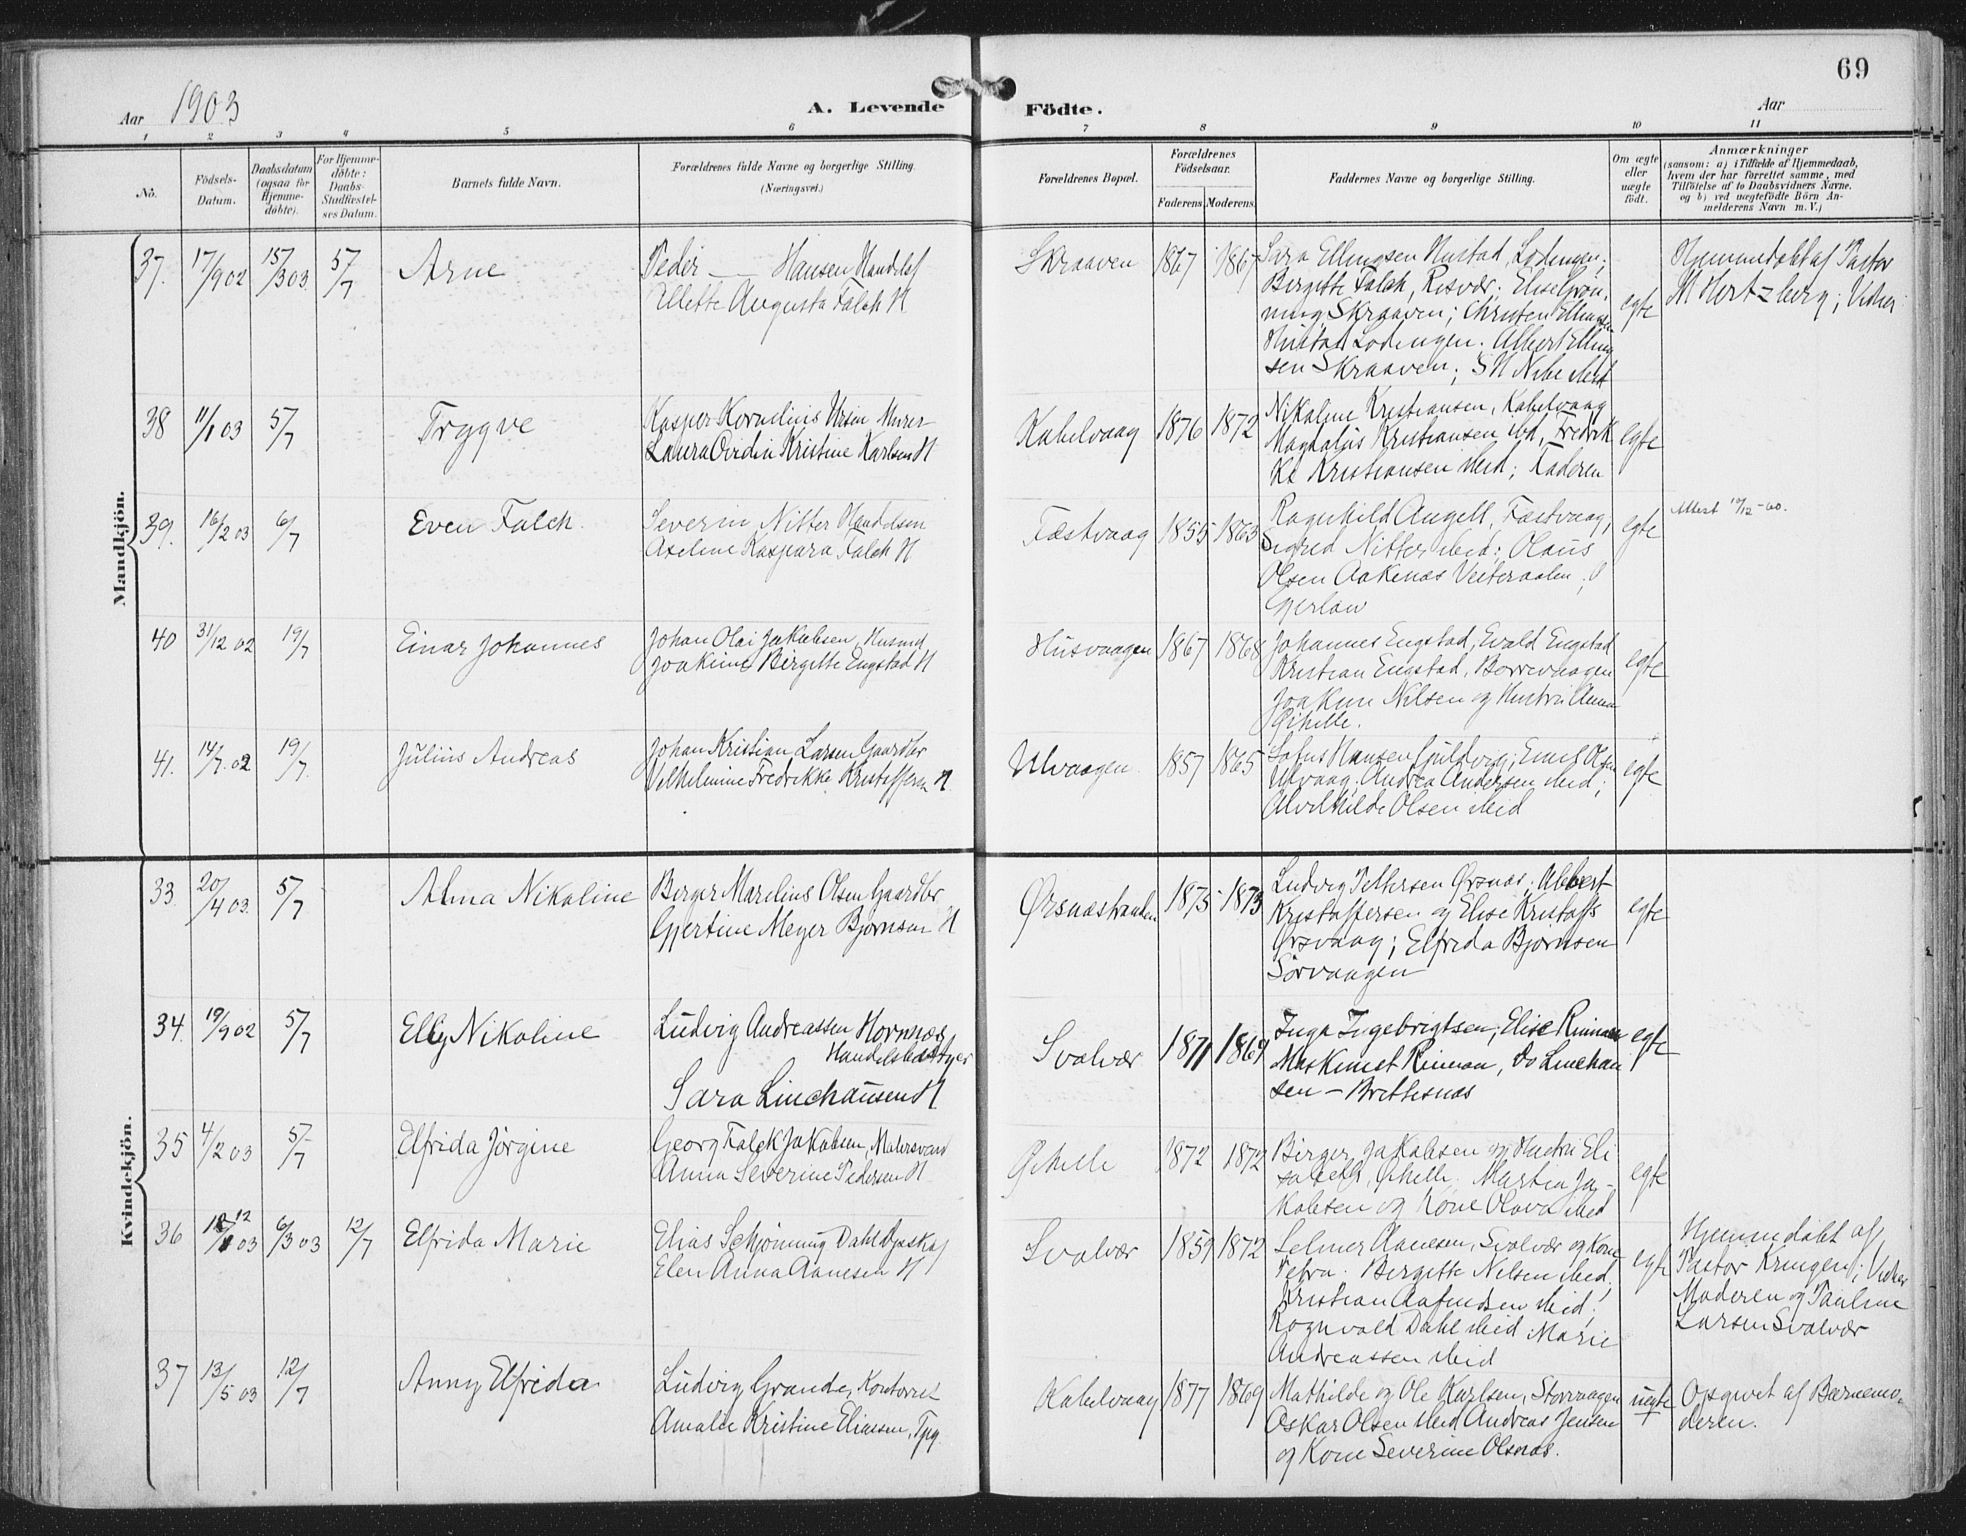 69
Aar 1903
A. Levende Födte.
Aar
1 2 3 4 5 6 7 8 9 10 11
No.
Födsels-
Datum.
Daabsdatum
(ogsaa for
Hjemme-
döbte).
For Hjemme-
döbte:
Daabs-
Stadfæstel-
ses Datum.
Barnets fulde Navn.
Forældrenes fulde Navne og borgerlige Stilling.
(Næringsvei.)
Forældrenes Bopæl.
Forældrenes
Födselsaar.
Faderens Moderens
Faddernes Navne og borgerlige Stilling.
Om ægte
eller
uægte
födt.
Anmærkninger
(saasom: a) i Tilfælde af Hjemmedaab,
hvem der har forrettet samme, med
Tilföielse af to Daabsvidners Navne.
og b) ved uægtefödte Börn An-
melderens Navn m. V.)
Mandkjön.
37. 17/9 02 15/3 03 5/7 Arne
Peder Hansen
Augusta Falch H
Skraaven 1867 1867
Sara Ellingsen Lodingen;
Birgitte Falch, Risvær; Elise Grøn
ning Skraaven; Christen
Lodingen. Albert Elling
sen Skraaven;
egte
Hjemmedøbt af Pastor
M Hertzberg;
38 11/1 03 5/7 Trygve
Kasper Kornelius Ursin Murer
Laura Kristine Karlsen H
Kabelvaag 1876 1872
Nikoline Kristiansen, Kabelvaag
Kristiansen ibd, Fredrik
Kr Kristiansen ibid; Faderen
egte
39. 16/2 03 6/7 Even Falch
Severin Nitter
Axeline Kaspara Falch H
Fæstvaag 1855 1863
Ragnhild Angell, Fæstvaag,
Sigrid Nitter ibid; Olaus
Olsen Aakenes Vesteraalen
egte
Attest
40 31/12 02 19/7 Einar Johannes
Johan Olai Jakobsen, Husmd
Joakime Birgitte Engstad H
Husvaagen 1867 1868
Johannes Engstad, Evald Engstad
Kristian Engstad, Borrevaagen
Joakim Nilsen og Hustru Anna
Øihelle.
egte
41. 14/7 02 19/7 Julius Andreas
Johan Kristian Larsen Gaardbr
Vilhelmine Fredrikke Kristoffersen H
Ulvaagen 1857 1865
Hansen Emil Olsen
Ulvaag; Andrea Andersen ibid;
Alvilhilde Olsen ibid
egte
Kvindekjön.
33 20/4 03 5/7 Alma Nikoline
Birger Marelius Olsen Gaardbr
Gjertine Meyer Bjørnsen H
Ørsnæsstranden 1875 1873
Ludvig Pettersen Ørsnæs; Albert
Kristoffersen og Elise Kristoffs
Ørsvaag; Elfrida Bjørnsen
Sørvaagen
egte
34. 19/9 02 5/7 Elly Nikoline
Ludvig Andreassen Hornnæs
Sara Linchausen H
Svolvær 1871 1869
Inga Ingebrigtsen; Elise Rinnan
Maskinist Rinnan, do Linchau
sen – Brettesnæs
egte
35 4/2 03 5/7 Elfrida Jørgine
Georg Falck Jakobsen, Malersvend
Anna Severine Pedersen H
Øihelle 1872 1872
Birger Jakobsen og Hustru Eli
sabeth, Øihelle. Martin Ja-
kobsen og Kone Olava ibid
egte
36 6/3 03 12/7 Elfrida Marie
Elias Schjønning Dahl
Elen Anna Aanesen H
Svolvær 1859 1872
Selmer Aanesen, Svolvær og Kone
Petra. Birgitte Nilsen ibid,
Kristian ibid;
Rognvald Dahl ibid Marie
Andreassen ibid
egte
Hjemmedøbt af
Pastor Kringen; Vidner
Moderen og Pauline
Larsen Svolvær
37 13/5 03 12/7 Anny Elfrida
Ludvig Grande, Kontorist
Amalie Kristine Eliasen,
Kabelvaag 1877 1869
Mathilde og Ole Karlsen, Storvaagen
Oskar Olsen ibid Andreas Jensen
og Kone Severine Olsnæs.
uegte
Opgivet af Barnemo-
deren.